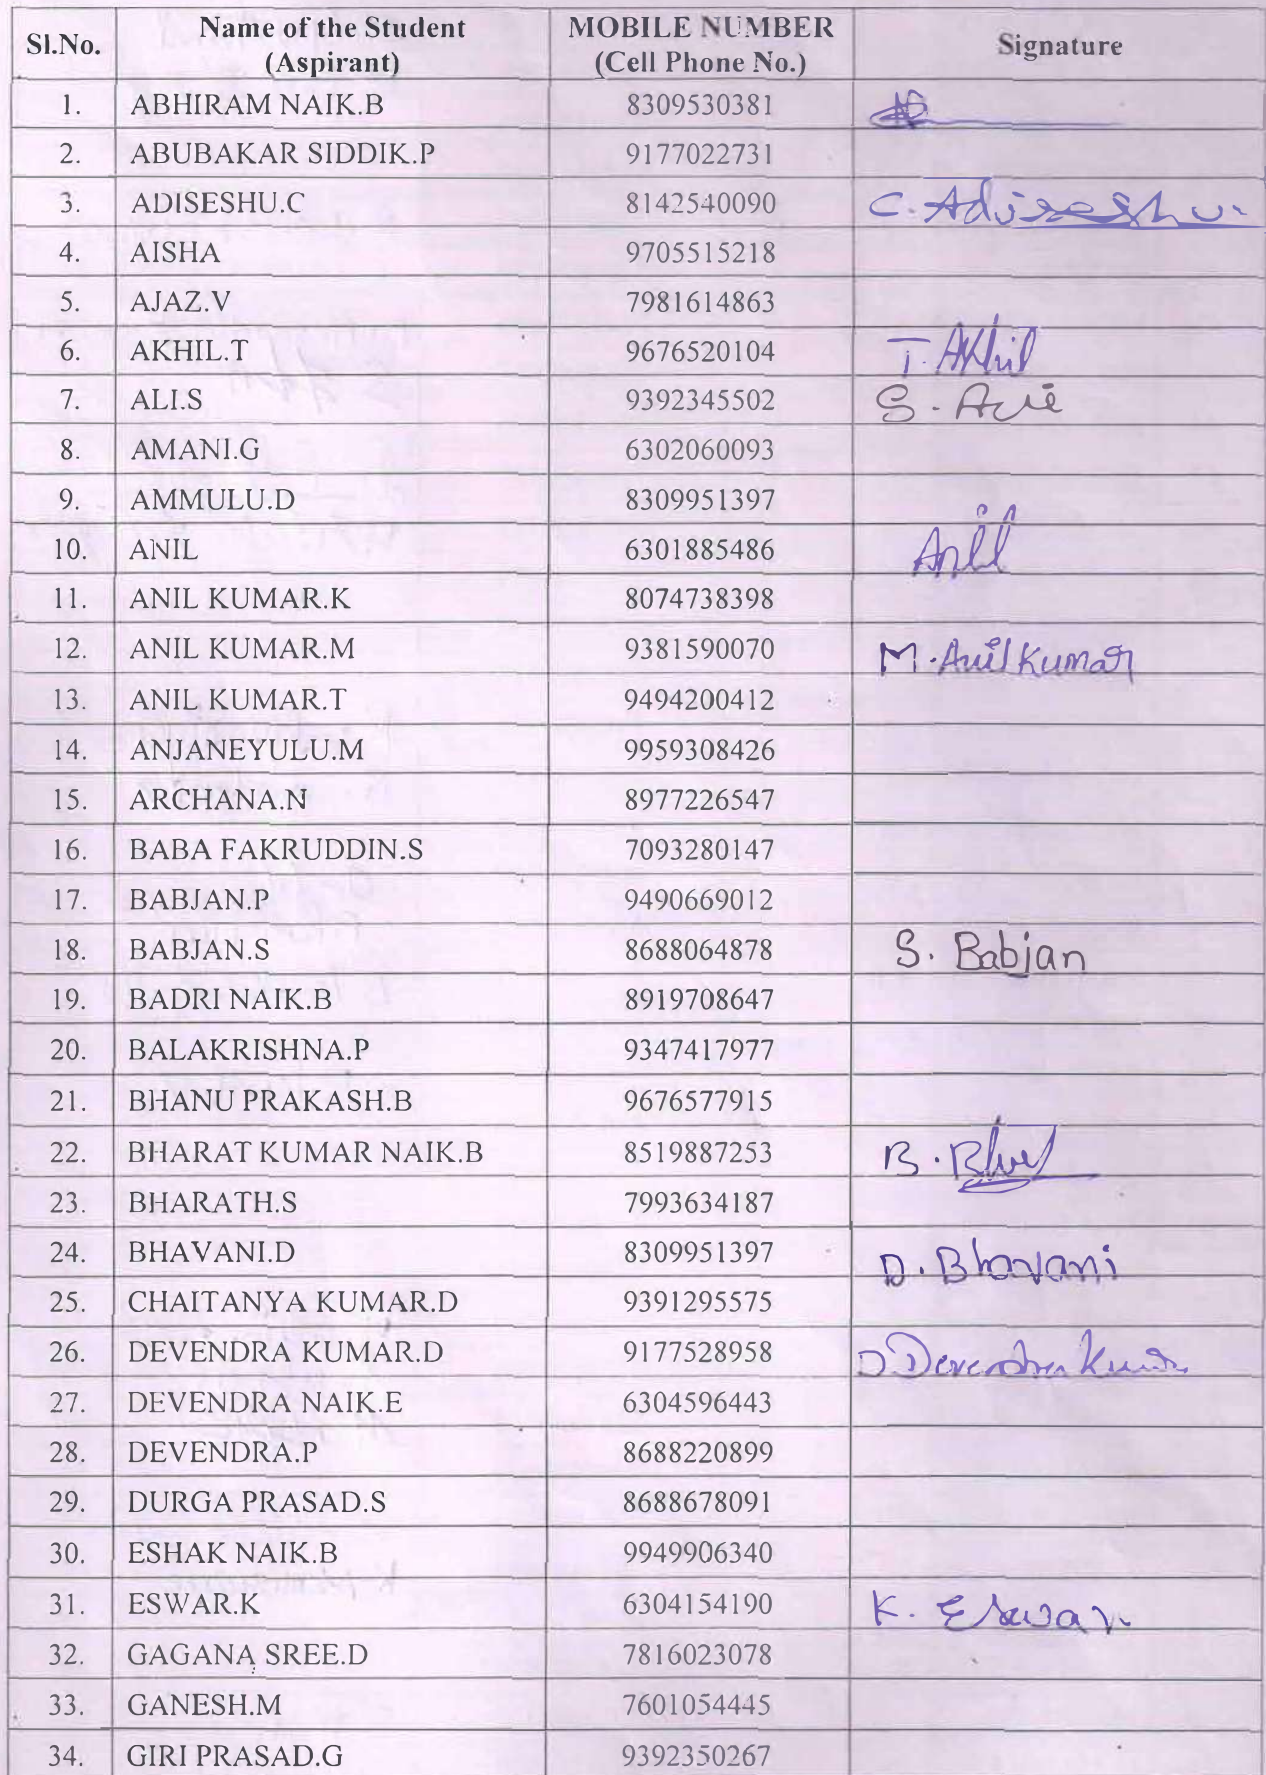 Sl.No. Name of the Student (Aspirant) MOBILE NUMBER (Cell Phone No.) Signature
1. ABHIRAM NAIK.B 8309530381
2. ABUBAKAR SIDDIK.P 9177022731
3. ADISESHU.C 8142540090 C. Adiseshu.
4. AISHA 9705515218
5. AJAZ.V 7981614863
6. AKHIL.T 9676520104 T. Akhil
7. ALI.S 9392345502 S.
8. AMANI.G 6302060093
9. AMMULU.D 8309951397
10. ANIL 6301885486 Anil
11. ANIL KUMAR.K 8074738398
12. ANIL KUMAR.M 9381590070 M. Anil Kumar
13. ANIL KUMAR.T 9494200412
14. ANJANEYULU.M 9959308426
15. ARCHANA.N 8977226547
16. BABA FAKRUDDIN.S 7093280147
17. BABJAN.P 9490669012
18. BABJAN.S 8688064878 S. Babjan
19. BADRI NAIK.B 8919708647
20. BALAKRISHNA.P 9347417977
21. BHANU PRAKASH.B 9676577915
22. BHARAT KUMAR NAIK.B 8519887253 B.
23. BHARATH.S 7993634187
24. BHAVANI.D 8309951397 D. Bhavani
25. CHAITANYA KUMAR.D 9391295575
26. DEVENDRA KUMAR.D 9177528958 D Devendra Kumar
27. DEVENDRA NAIK.E 6304596443
28. DEVENDRA.P 8688220899
29. DURGA PRASAD.S 8688678091
30. ESHAK NAIK.B 9949906340
31. ESWAR.K 6304154190 K. Eswar
32. GAGANA SREE.D 7816023078
33. GANESH.M 7601054445
34. GIRI PRASAD.G 9392350267